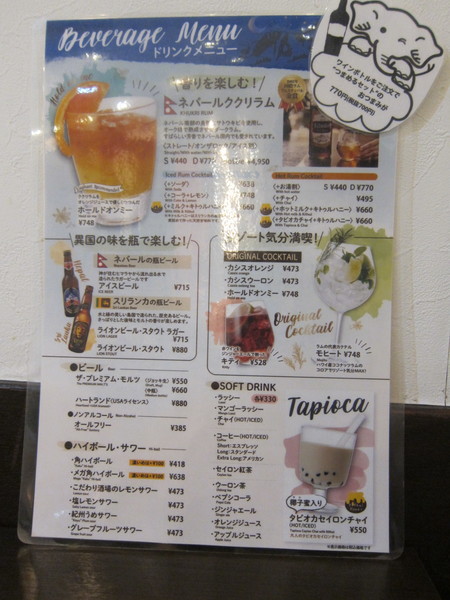 Beverage Menu
ドリンクメニュー
ワインボトルをご注文で
"つまめるセット"の
おつまみが
770円(税抜700円)
香りを楽しむ!
ネパールククリラム
KHUKRI RUM
(ストレート/オンザロック/アイス割)
S ¥440 D ¥770
¥4,950
Iced Rum Cocktail
(+ソーダ)
¥638
(+コーラ+レモン)
¥748
(+ミルク+キトゥルハニー)
¥660
Hot Rum Cocktail
(+お湯割)
S ¥440 D ¥770
(+チャイ)
¥495
(+ホットミルク+キトゥルハニー)
¥660
(+タピオカチャイ+キトゥルハニー)
¥660
Hold
オールドオンミー
¥748
異国の味を瓶で楽しむ!
ネパールの瓶ビール
アイスビール
¥715
スリランカの瓶ビール
ライオンビール・スタウト ラガー
¥715
ライオンビール・スタウト
¥880
ゾート気分満喫!
ORIGINAL COCKTAIL
・カシスオレンジ ¥473
・カシスウーロン ¥473
・ホールドオンミー ¥748
キティ ¥528
Original Cocktail
ラムの代表カクテル
モヒート ¥748
●ビール Beer
ザ・プレミアム・モルツ (ジョッキ生) ¥550
(中瓶) ¥660
ハートランド(USAライセンス) ¥880
●ノンアルコール
オールフリー
¥385
●ハイボール・サワー
・角ハイボール
¥418
・メガ角ハイボール
¥638
・こだわり酒場のレモンサワー
¥473
・塩レモンサワー
¥473
・紀州うめサワー
¥473
・グレープフルーツサワー
¥473
●SOFT DRINK
各¥330
・ラッシー
・マンゴーラッシー
・チャイ(HOT/ICED)
・コーヒー(HOT/ICED)
Short: エスプレッソ
Long: スタンダード
Extra Long: アメリカン
・セイロン紅茶
・ウーロン茶
・ペプシコーラ
・ジンジャエール
・オレンジジュース
・アップルジュース
Tapioca
椰子蜜入り
タピオカセイロンチャイ
(HOT/ICED)
¥550